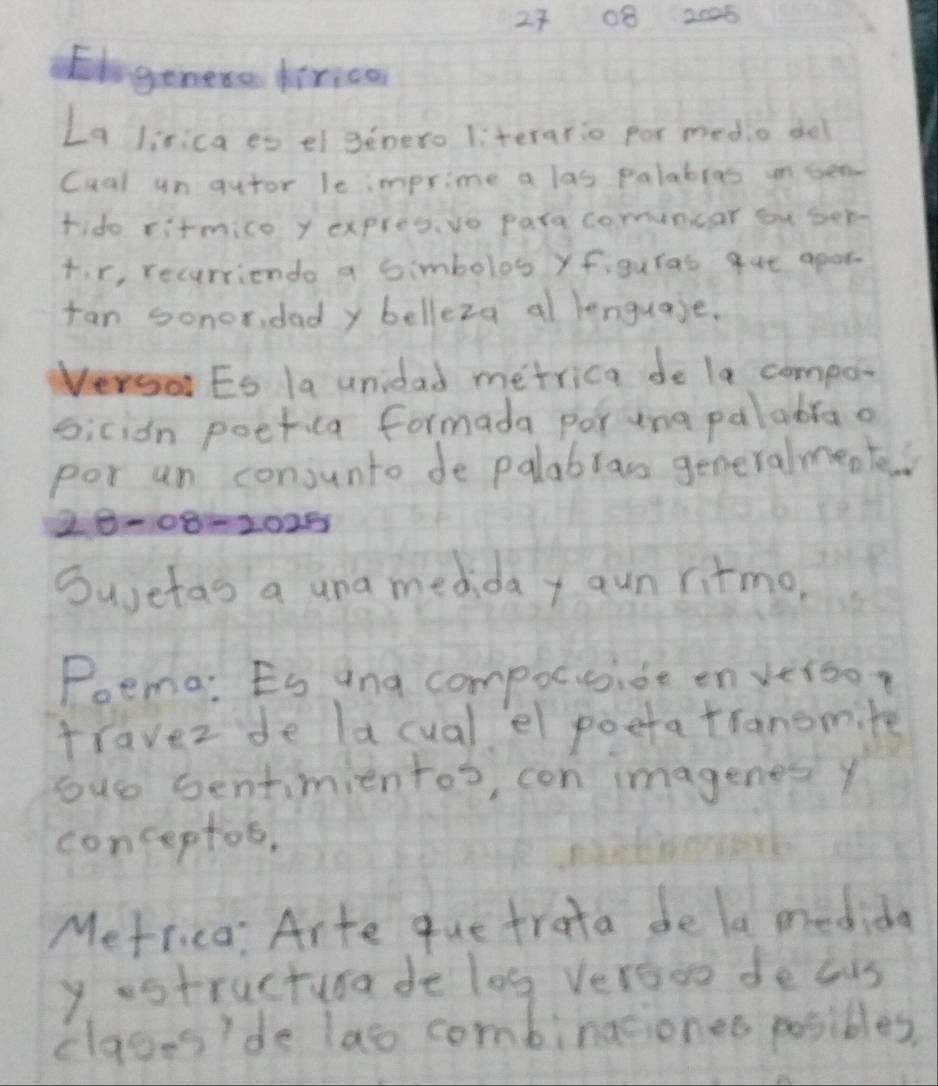 27 08 2025
El genero lírico
La lírica es el género literario por medio del
cual un autor le imprime a las palabras un sen-
tido rítmico y expresivo para comunicar su sen-
tir, recurriendo a simbolos y figuras que apor-
tan sonoridad y belleza al lenguaje.
Verso: Es la unidad métrica de la compo-
sición poetica formada por una palabra o
por un conjunto de palabras generalmente.
28-08-2025
Sujetas a una medida y aun ritmo.
Poema: Es una en verso a
travez de la cual el poeta transmite
sus sentimientos, con imagenes y
conceptos.
Metrica: Arte que trata de la medida
y estructura de los versos de sus
clases de las combinaciones posibles.